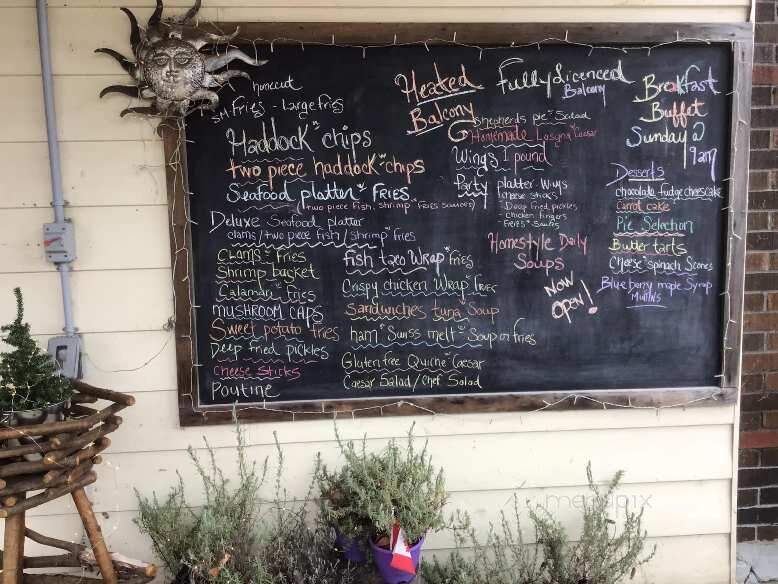 homecut
sm Fries - large fries
Haddock n chips
two piece haddock n chips
Seafood platter n Fries
(two piece fish, shrimp n fries sauces)
Deluxe Seafood platter
clams/two piece fish/shrimp n fries
Clams n Fries
Shrimp basket
Calamari Fries
Mushroom Caps
Sweet potato fries
Deep fried pickles
Cheese Sticks
Poutine
fish taco Wrap n fries
Crispy chicken Wrap fries
Sandwiches tuna Soup
ham n Swiss melt n Soup or fries
Gluten free Quiche n Caesar
Caesar Salad/Chef Salad
Heated
Balcony
Fully Licenced
Balcony
Shepherds pie n Salad
Homemade Lasagna n Caesar
Wings 1 pound
Party platter Wings
cheese sticks
- Deep fried pickles
- Chicken fingers
- Fries n
Homestyle Daily
Soups
Now
Open!
Breakfast
Buffet
Sunday @
9am
Desserts
chocolate fudge cheesecake
Carrot cake
Pie Selection
Butter tarts
Cheese n spinach Scones
Blueberry maple Syrup
Muffins
menupix